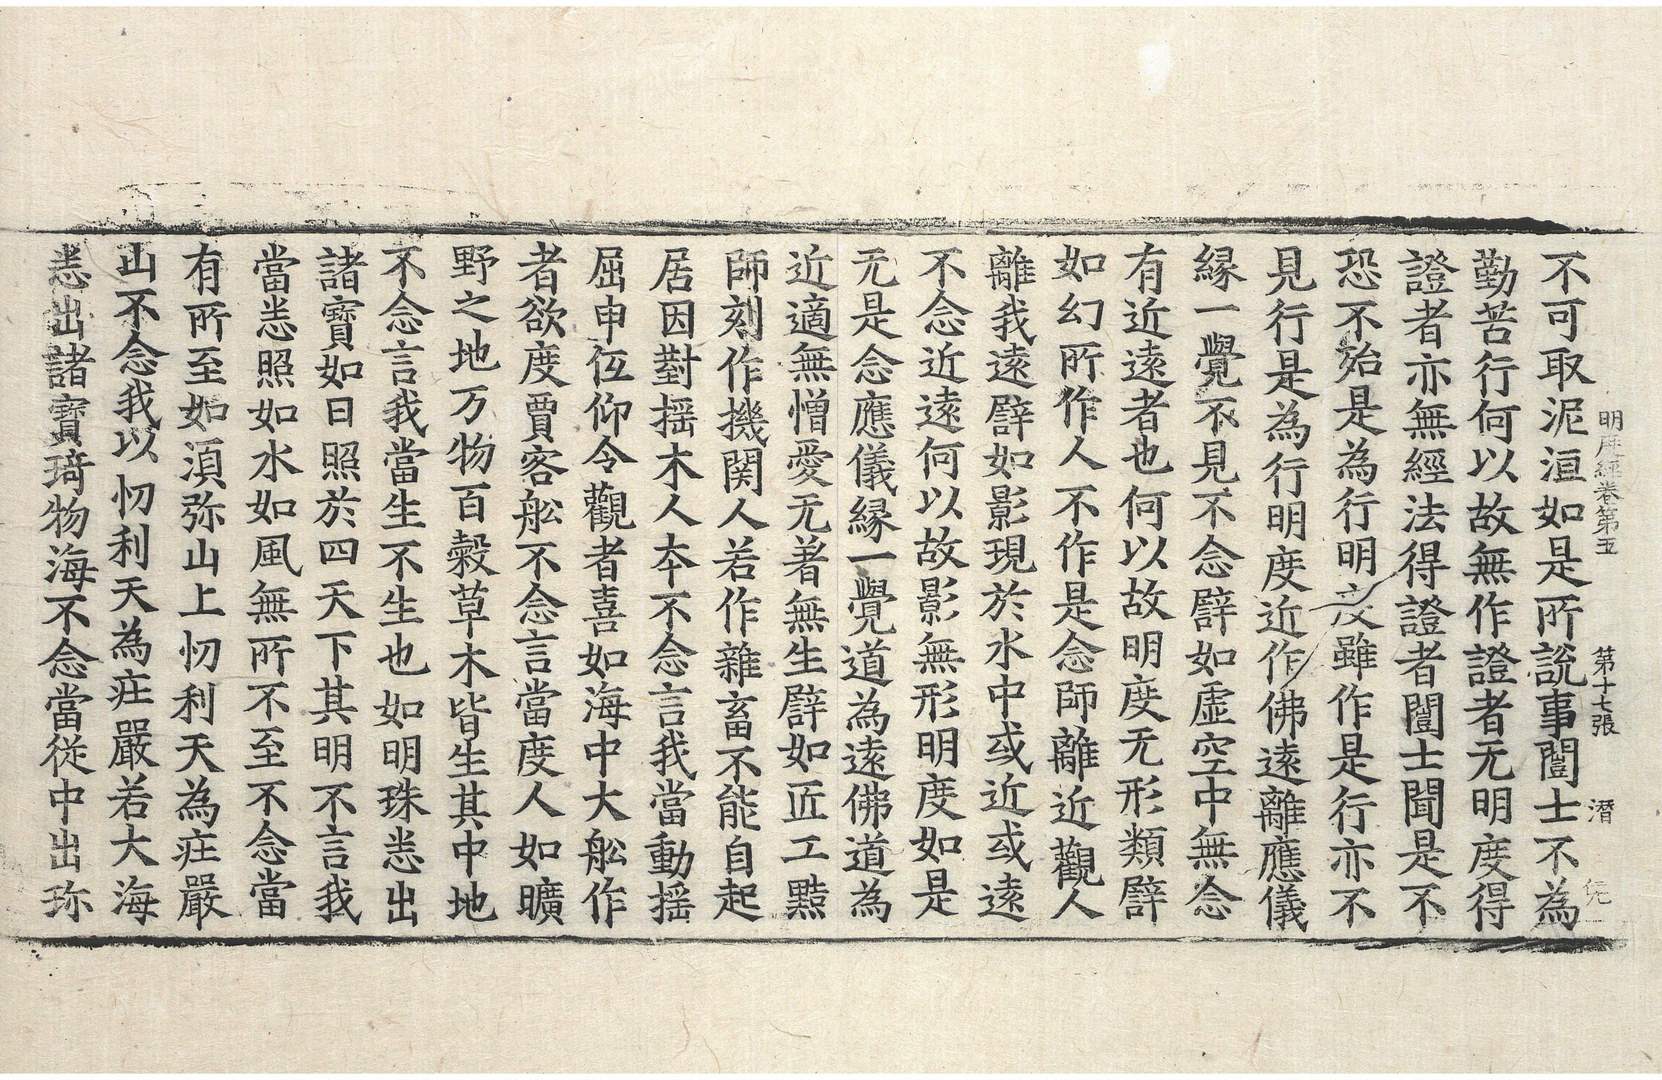 明度經卷第五 第十七張 潛
不可取泥洹如是所說事闓士不為
勤苦行何以故無作證者无明度得
證者亦無經法得證者闓士聞是不
恐不殆是為行明度雖作是行亦不
見行是為行明度近作佛遠離應儀
緣一覺不見不念譬如虛空中無念
有近遠者也何以故明度无形類譬
如幻所作人不作是念師離近觀人
離我遠譬如影現於水中或近或遠
不念近遠何以故影無形明度如是
无是念應儀緣一覺道為遠佛道為
近適無憎愛无著無生譬如匠工黠
師刻作機関人若作雜畜不能自起
居因對揺木人夲不念言我當動揺
屈申伍仰令觀者喜如海中大舩作
者欲度賈客舩不念言當度人如曠
野之地万物百穀草木皆生其中地
不念言我當生不生也如明珠悉出
諸寶如日照於四天下其明不言我
當悉照如水如風無所不至不念當
有所至如湏弥山上忉利天為㽵嚴
山不念我以忉利天為㽵嚴若大海
悉出諸寶琦物海不念當從中出珎